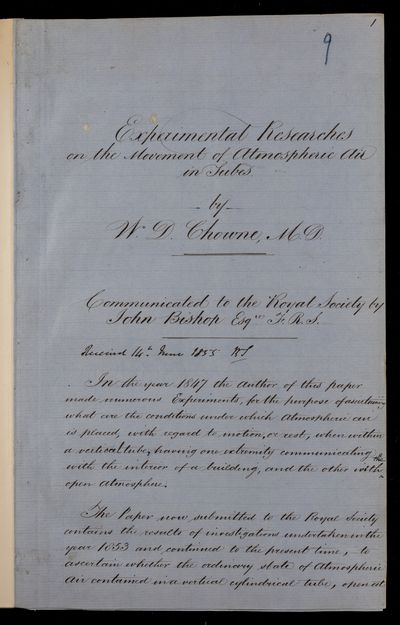 1
9
Experimental Researches
on the Movement of Atmospheric Air
in Tubes
by
W. D. Chowne, M.D.
Communicated to the Royal Society by
John Bishop Esqre F.R.S.
Received 14th June 1855
In the year 1847 the Author of this paper
made numerous Experiments, for the purpose of ascertaining
what are the conditions under which Atmospheric air
is placed, with regard to motion, or rest, when within
a vertical tube, having one extremity communicating
with the interior of a building, and the other with the
open Atmosphere.
The Paper now submitted to the Royal Society
contains the results of investigations undertaken in the
year 1853 and continued to the present time, to
ascertain whether the ordinary state of Atmospheric
Air contained in a vertical cylindrical tube, open at